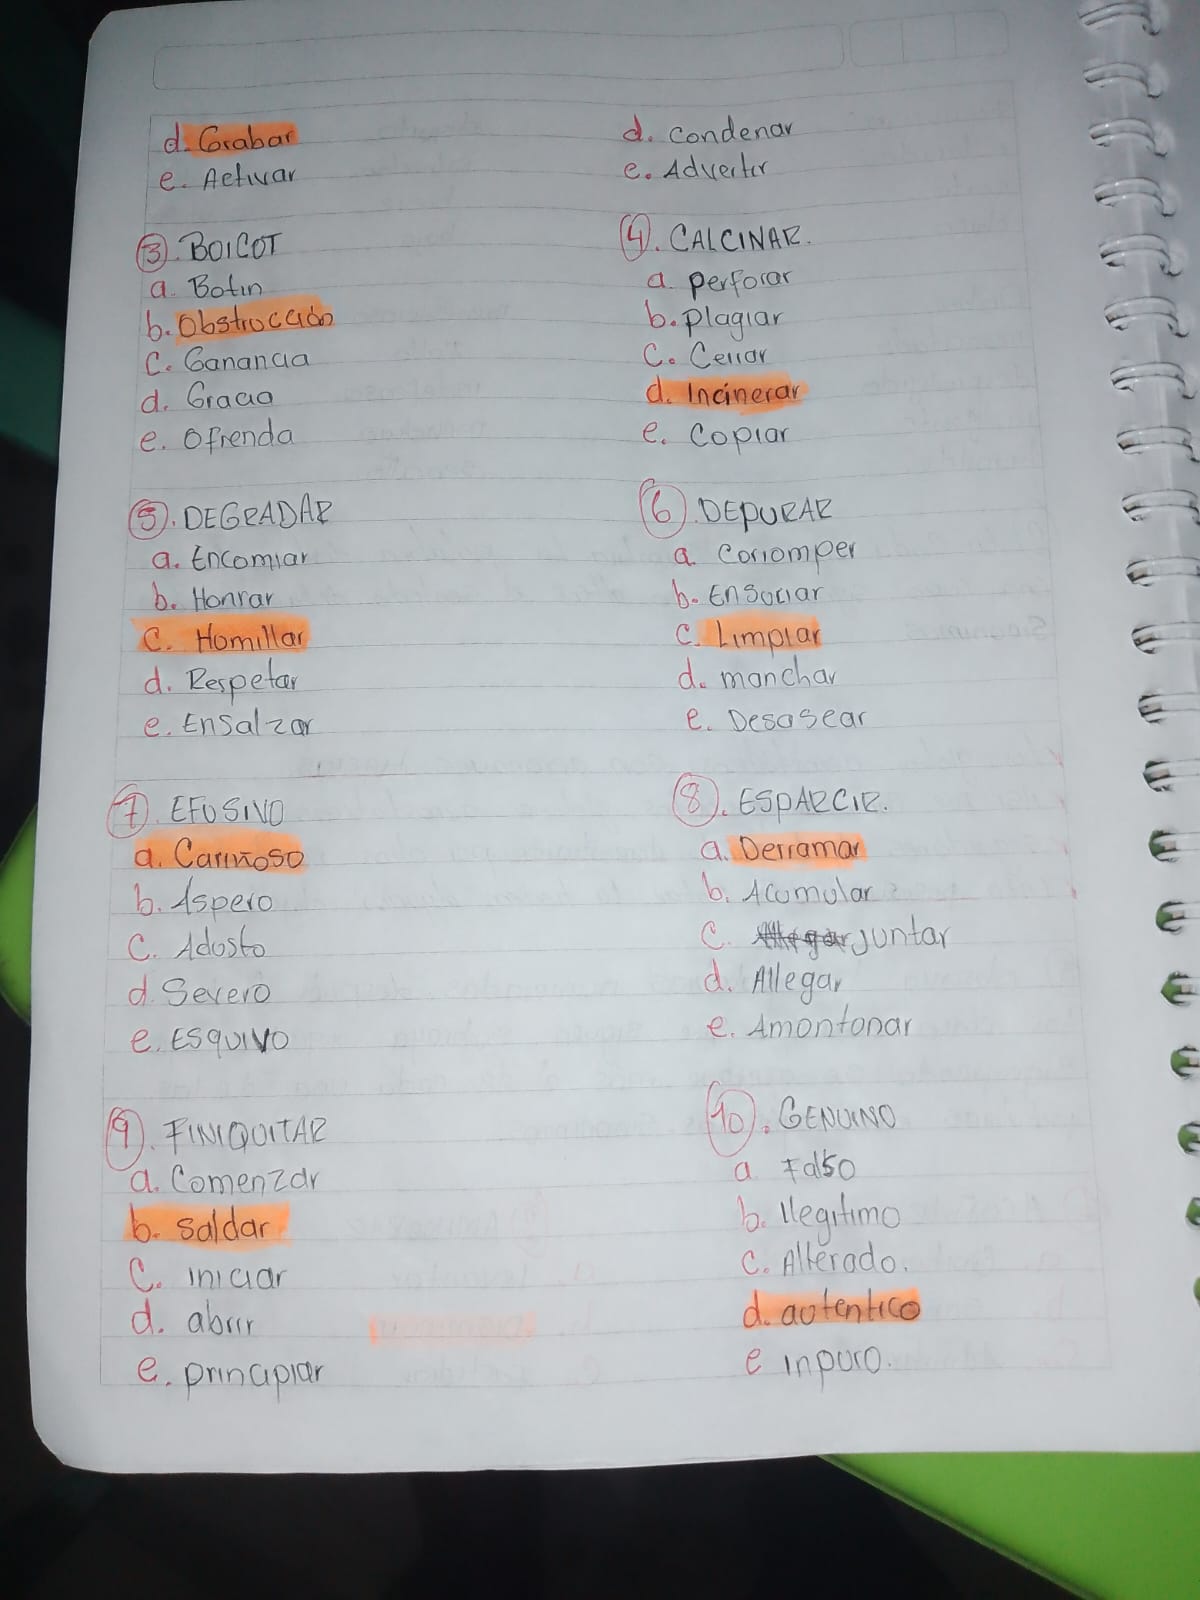 d. Grabar
e. Activar
d. Condenar
e. Advertir
3. BOICOT
a. Botin
b. Obstrucción
c. Ganancia
d. Gracia
e. Ofrenda
4. CALCINAR.
a. perforar
b. plagiar
c. Cerrar
d. Incinerar
e. Copiar
5. DEGRADAR
a. Encomiar
b. Honrar
c. Homillar
d. Respetar
e. Ensalzar
6. DEPURAR
a. Corromper
b. Ensuciar
c. Limpiar
d. manchar
e. Desasear
7. EFUSIVO
a. Cariñoso
b. Aspero
c. Adusto
d. Severo
e. ESquivo
8. ESPARCIR.
a. Derramar
b. Acumular
c. juntar
d. Allegar
e. Amontonar
9. FINIQUITAR
a. Comenzar
b. saldar
c. iniciar
d. abrir
e. principiar
10. GENUINO
a. Falso
b. Ilegitimo
c. Alterado.
d. autentico
e inpuro.